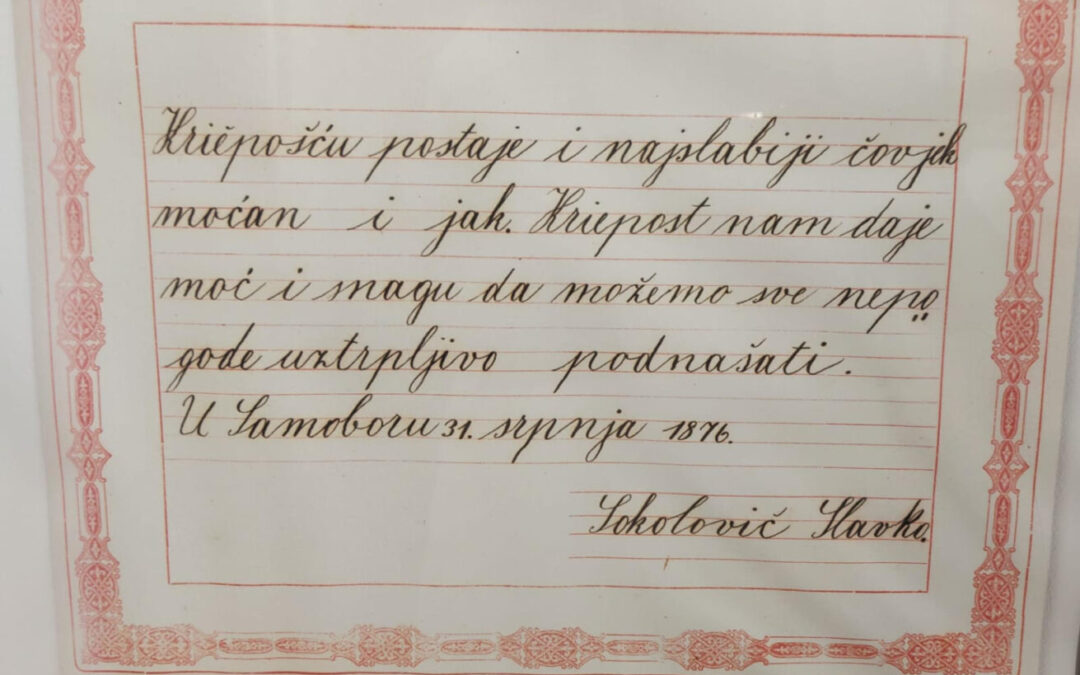 Kriepošću postaje i najslabiji čovjek
moćan i jak. Kriepost nam daje
moć i snagu da možemo sve nepo„
gode uztrpljivo podnašati.
U Samoboru 31. srpnja 1876.
Sokolović Slavko.